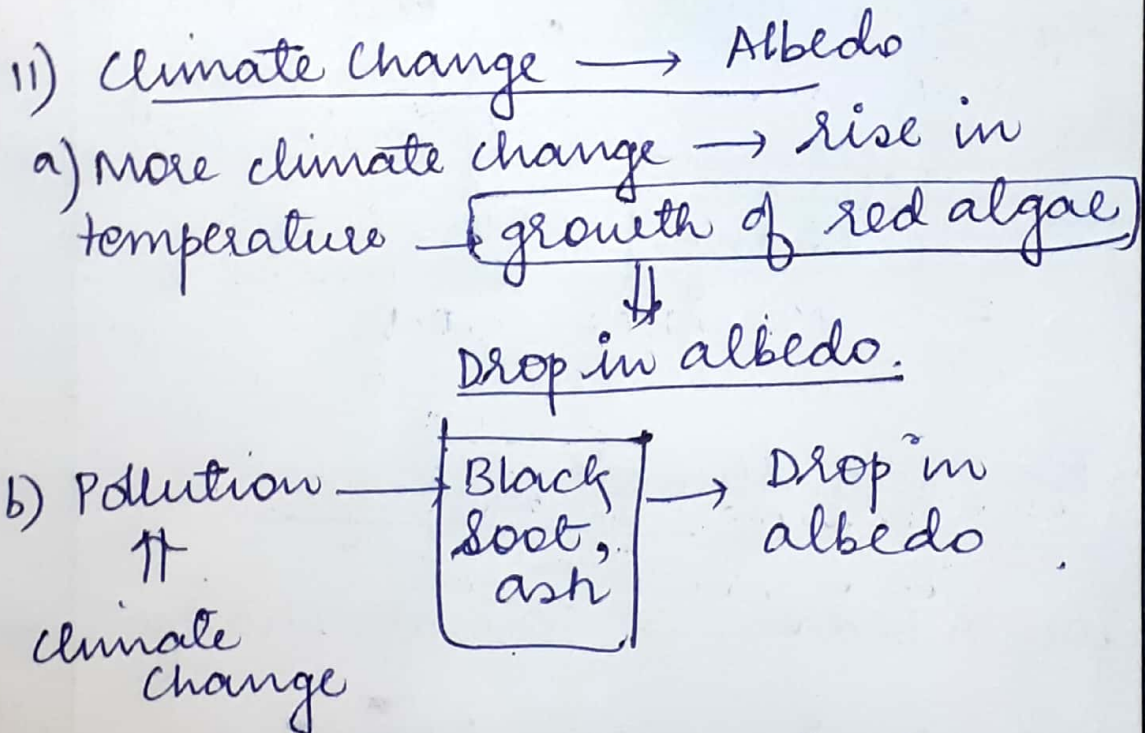 11) Climate Change → Albedo
a) More climate change → rise in
temperature → growth of red algae
⇓
Drop in albedo.
b) Pollution → Black soot, ash → Drop in albedo
⇑
climate
change